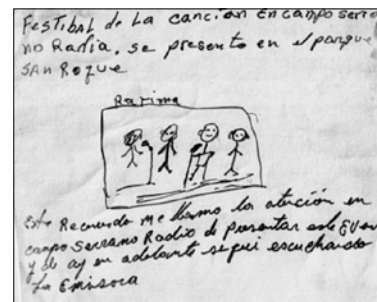 FesTibal de La canción En campo serra
no Radia. se presento en el parque
SAn Roque
Rarima
este Recuerdo me llamo la atención en
campo Serramo Radio de presentar este Even
y de ay en adelante seguí escuchando
La Emisora